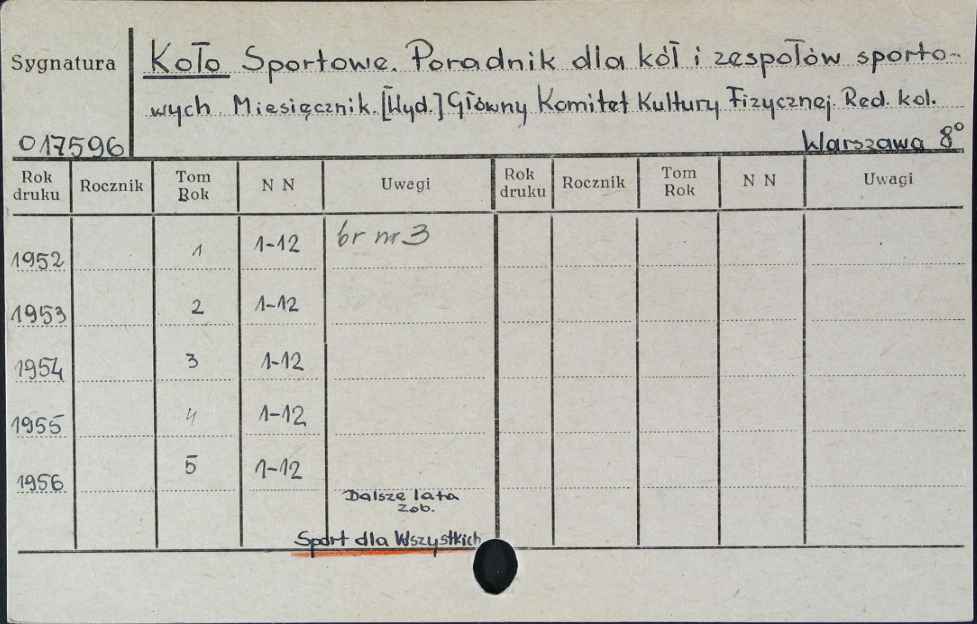 Sygnatura
Koło Sportowe. Poradnik dla kół i zespołów sporto-
wych. Miesięcznik. [Wyd.] Główny Komitet Kultury Fizycznej. Red. kol.
017596 Warszawa 8°
Rok druku Rocznik Tom Rok N N Uwagi Rok druku Rocznik Tom Rok N N Uwagi
1952 1 1-12 br nr 3
1953 2 1-12
1954 3 1-12
1955 4 1-12
1956 5 1-12
Dalsze lata
zob.
Sport dla Wszystkich